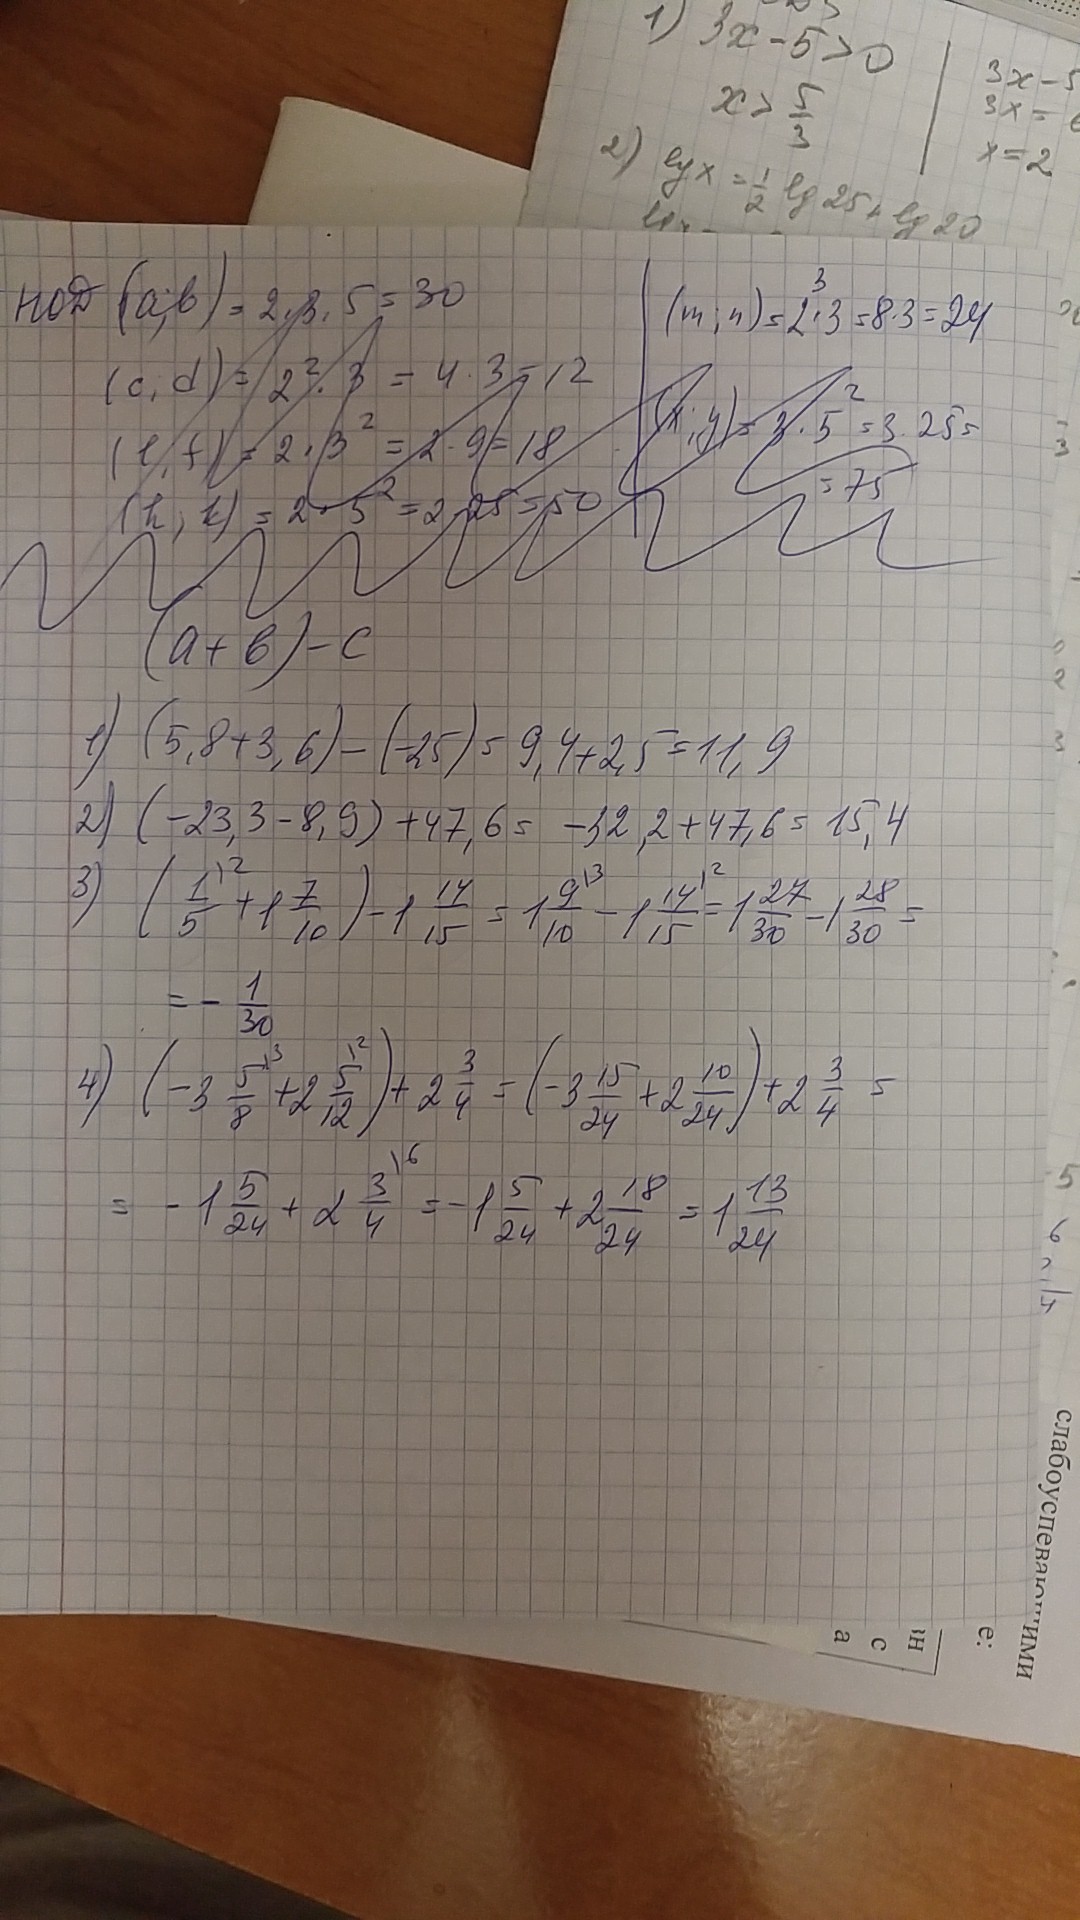 1) 3x-5>0
x> 5/3
2) lg x = 1/2 lg 25 + lg 20
3x-5
3x=6
x=2
НОД (a;b) = 2·3·5=30
(c,d)= 2²·3 = 4·3=12
(l,f) = 2·3² = 2·9=18
(h;k) = 2·5² = 2·25=50
(m;n)=2³·3=8·3=24
(x;y)= 3·5² =3·25=
=75
(a+b)-c
1) (5,8+3,6)-(-2,5)= 9,4+2,5=11,9
2) (-23,3-8,9)+47,6= -32,2+47,6=15,4
3) (1/5\2 + 1 7/10) - 1 14/15 = 1 9/10\3 - 1 14/15\2 = 1 27/30 - 1 28/30 =
= - 1/30
4) (-3 5/8\3 + 2 5/12\2) + 2 3/4 = (-3 15/24 + 2 10/24) + 2 3/4 =
= -1 5/24 + 2 3/4\6 = -1 5/24 + 2 18/24 = 1 13/24
слабоуспевающими
е:
ин
с
а